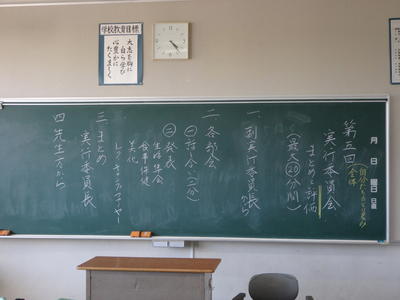 学校教育目標
大志を胸に
自ら学び
心豊かに
たくましく
月 日 曜日 日直
第五回 実行委員会
まとめと評価
(最大20分間)
一 副実行委員長から
二 各部会
㊀話し合い(二分)
㊁発表
生活集会
食事保健
美化
レクキャンプファイヤー
三 まとめ
実行委員長
四 先生方から